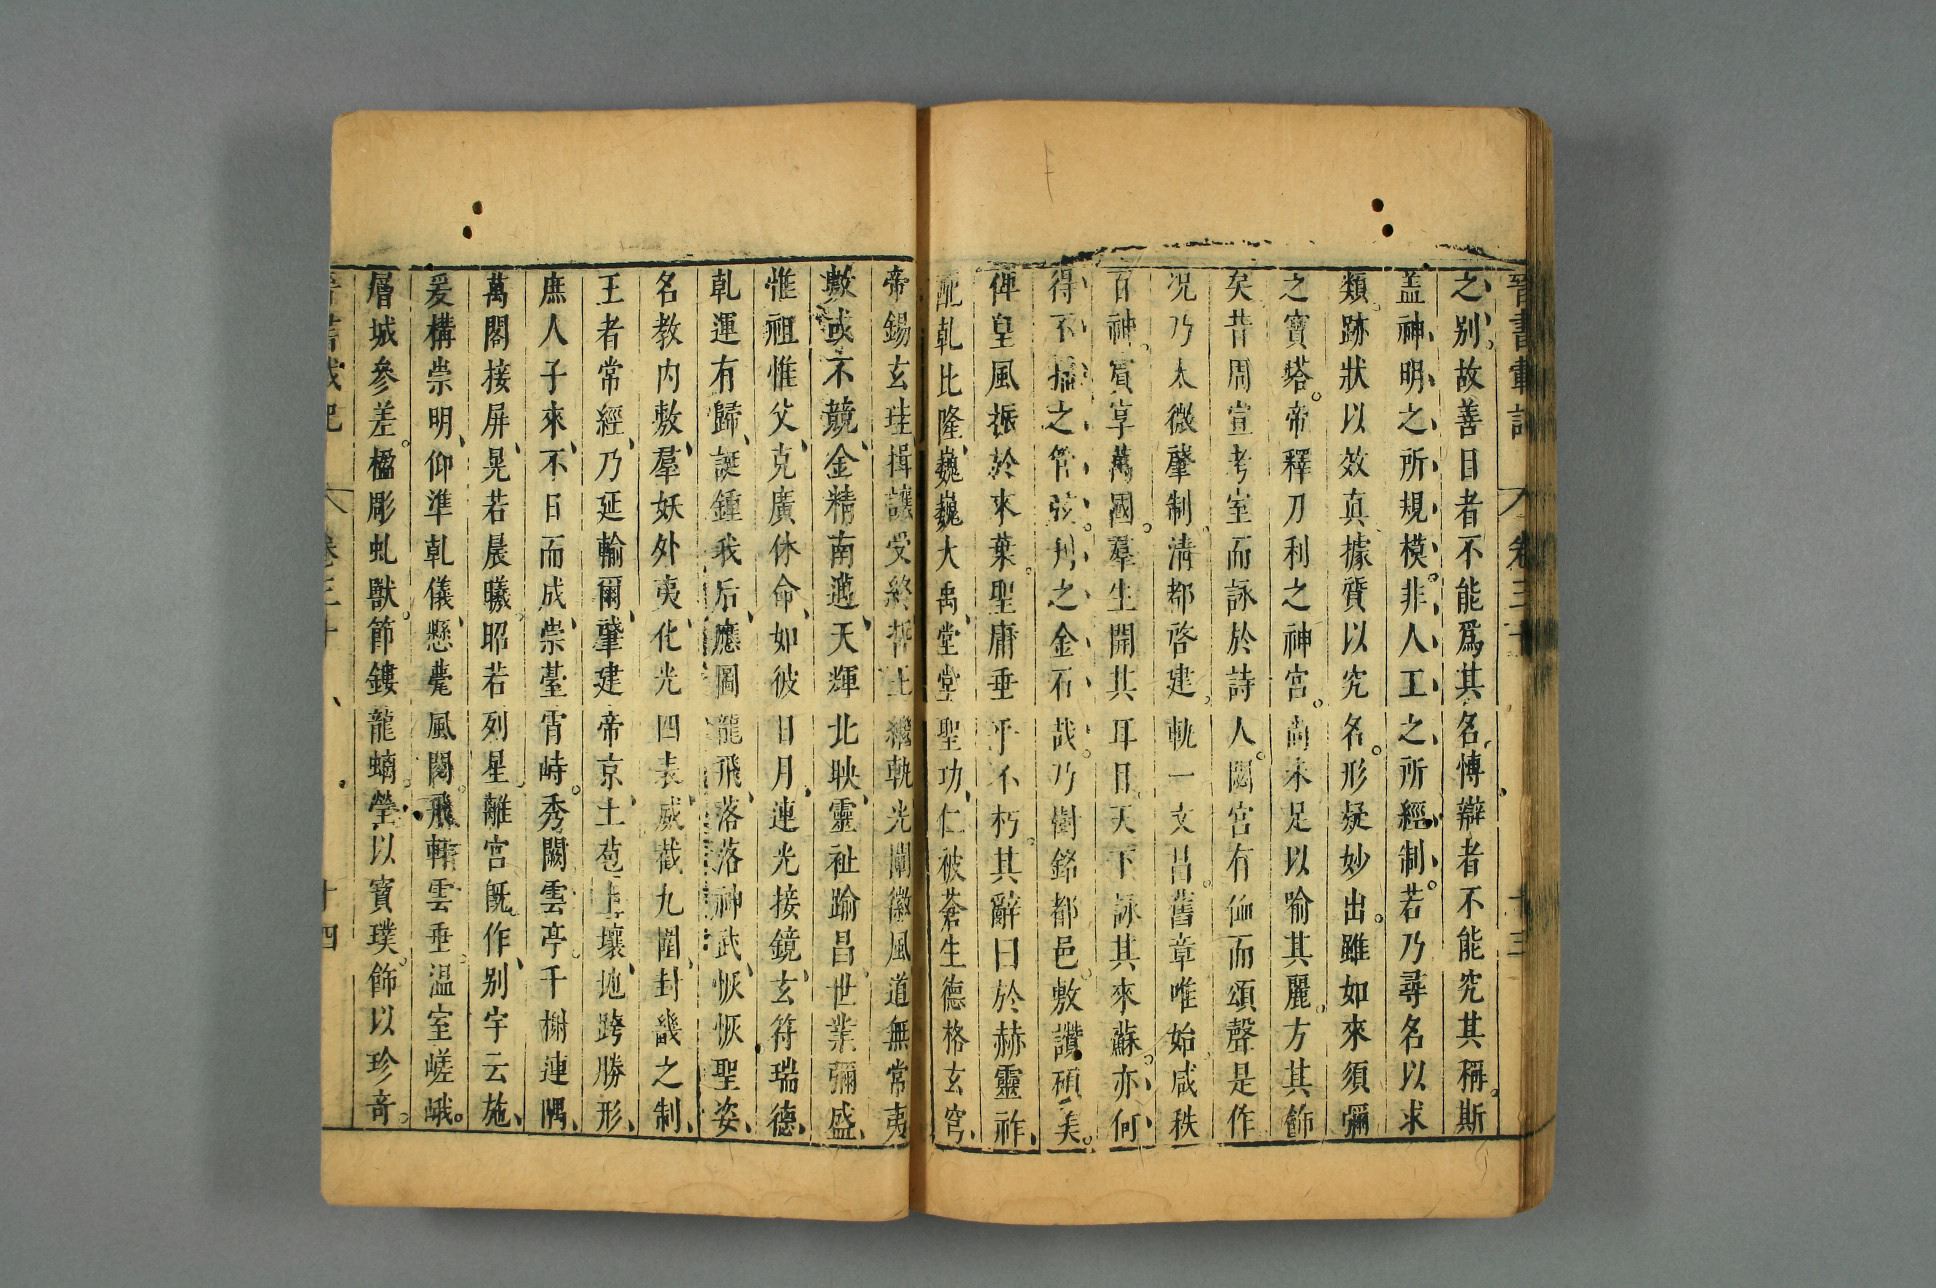 晉書載記 卷三十 十三
之别故善目者不能爲其名愽辯者不能究其稱斯
盖神明之所規模非人工之所經制若乃尋名以求
類跡狀以效真據質以究名形疑妙出雖如來須彌
之寶塔帝釋刀利之神宮尚未足以喻其麗方其飾
矣昔周宣考室而詠於詩人閟宮有侐而頌聲是作
况乃太微肇制清都啓建軌一文昌舊章唯始咸秩
百神賓享萬國羣生開其耳目天下詠其來蘇亦何
得不播之管弦刋之金石哉乃樹銘都邑敷讚碩美
俾皇風振於來葉聖庸垂乎不朽其辭曰於赫靈祚
配乾比隆巍巍大禹堂堂聖功仁被蒼生德格玄穹
帝錫玄珪揖讓受終哲王繼軌光闡徽風道無常夷
數或不競金精南邁天輝北映靈祉踰昌世業彌盛
惟祖惟父克廣休命如彼日月連光接鏡玄符瑞德
乹運有歸誕鍾我后應圖龍飛落落神武恢恢聖姿
名教内敷羣妖外夷化光四表威截九圍封畿之制
王者常經乃延輸爾肇建帝京土苞上壤地跨勝形
庶人子來不日而成崇臺霄峙秀闕雲亭千榭連隅
萬閣接屏晃若晨曦昭若列星離宮既作别宇云施
爰構崇明仰準乹儀懸甍風閱飛軒雲垂温室嵯峨
層城參差楹彫虬獸節鏤龍螭瑩以寳璞飾以珍竒
晉書載記 卷三十 十四